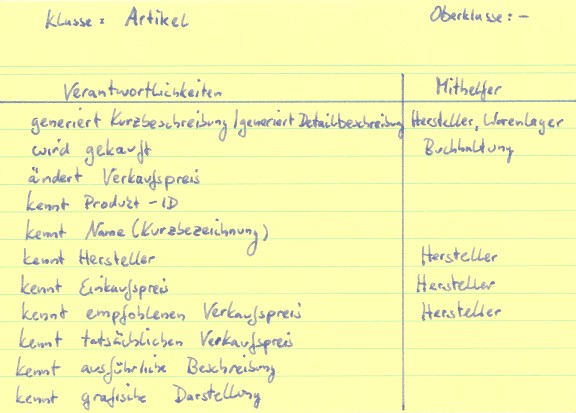 Klasse: Artikel Oberklasse: -
Verantwortlichkeiten Mithelfer
generiert Kurzbeschreibung/generiert Detailbeschreibung Hersteller, Warenlager
wird gekauft Buchhaltung
ändert Verkaufspreis
kennt Produkt-ID
kennt Name (Kurzbezeichnung)
kennt Hersteller Hersteller
kennt Einkaufspreis Hersteller
kennt empfohlenen Verkaufspreis Hersteller
kennt tatsächlichen Verkaufspreis
kennt ausführliche Beschreibung
kennt grafische Darstellung